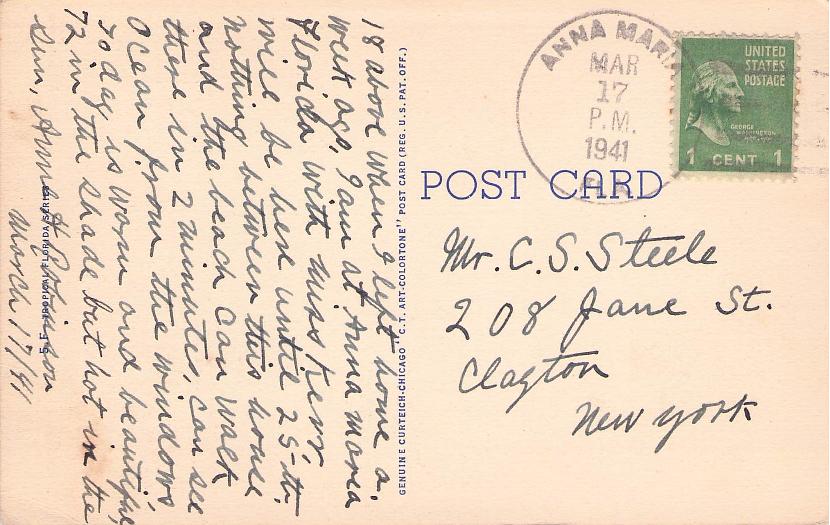 18 above when I left home a
week ago, I am at Anna Maria
Florida with Miss Kerr
will be here until 25-th.
nothing between this house
and the beach can walk
there in 2 minutes, can see
Ocean from the windows
today is warm and beautiful,
72 in the shade but hot in the
sun, Anna H Robinson
March 17/41
S. E.-TROPICAL FLORIDA SERIES
GENUINE CURTEICH-CHICAGO "C.T. ART-COLORTONE" POST CARD (REG. U.S. PAT. OFF.)
ANNA MARIA
MAR
17
P.M.
1941
FLA.
UNITED
STATES
POSTAGE
GEORGE
WASHINGTON
1 CENT 1
POST CARD
Mr. C. S. Steele
208 Jane St.
Clayton
New York